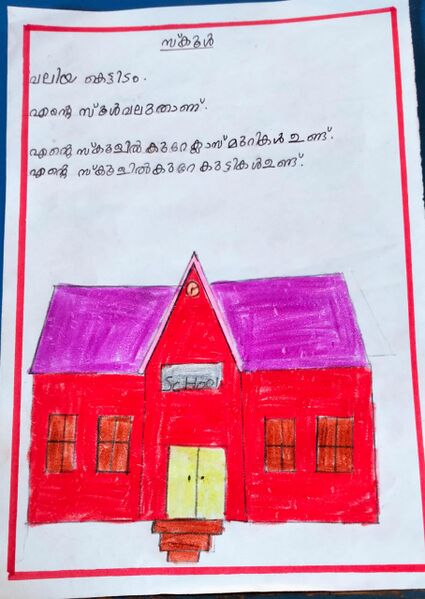 സ്കൂൾ
വലിയ കെട്ടിടം.
എന്റെ സ്കൂൾവലുതാണ്.
എന്റെ സ്കൂളിൽ കുറേ ക്ലാസ്മുറികൾ ഉണ്ട്.
എന്റെ സ്കൂളിൽകുറേ കുട്ടികൾഉണ്ട്.
SCHOOL